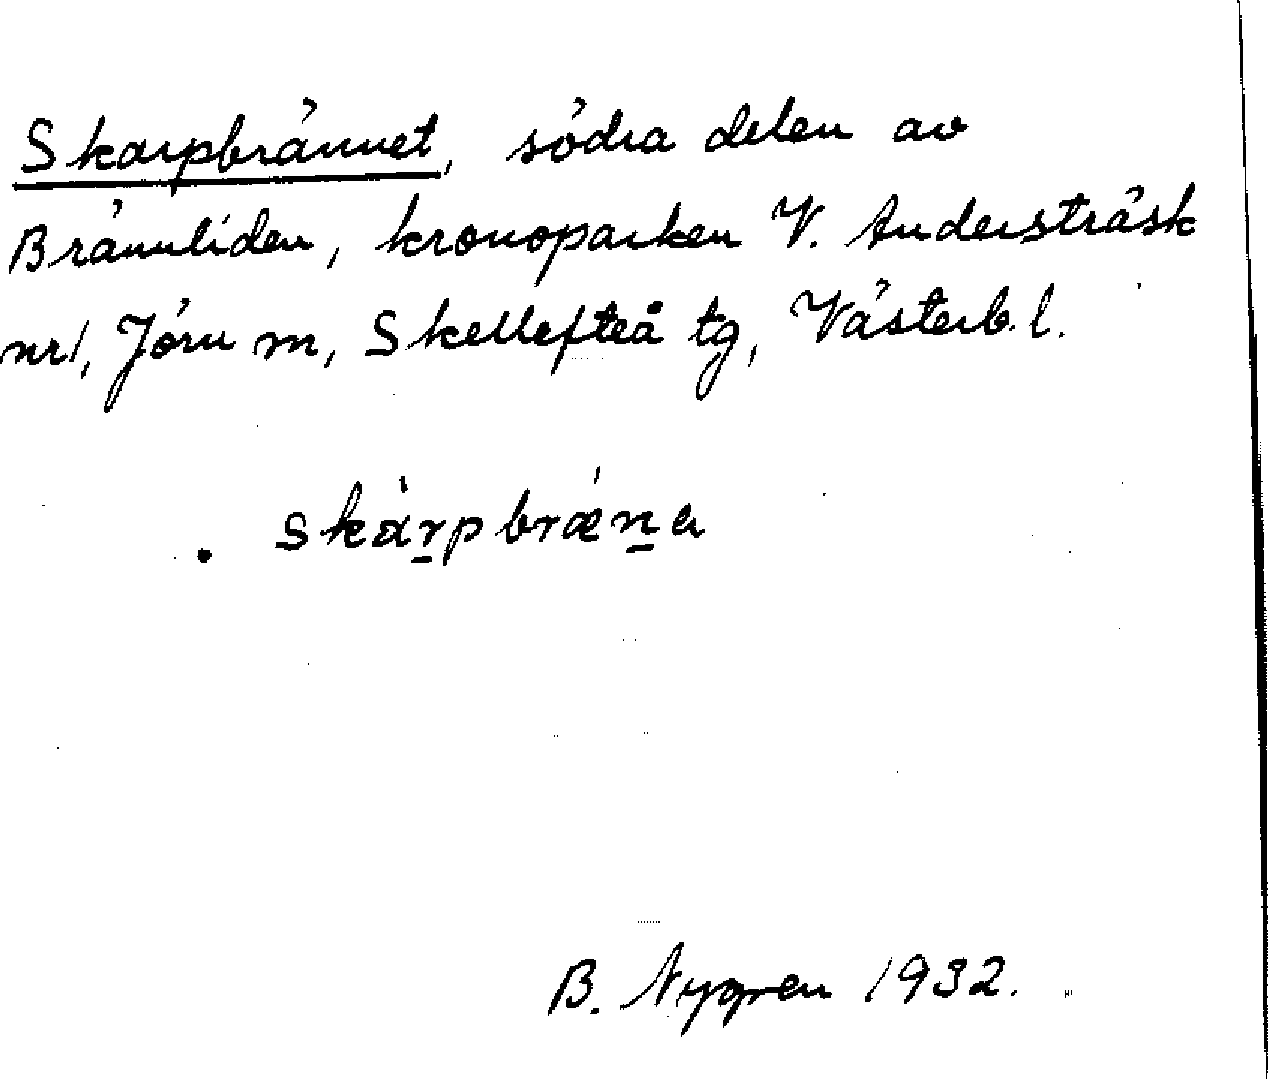 Skarpbrännet, södra delen av
Brännliden, kronoparken V. Andersträsk
nr 1, Jörn m, Skellefteå tg, Västerb. l.
. skàrpbrǽna
B. Nygren 1932.